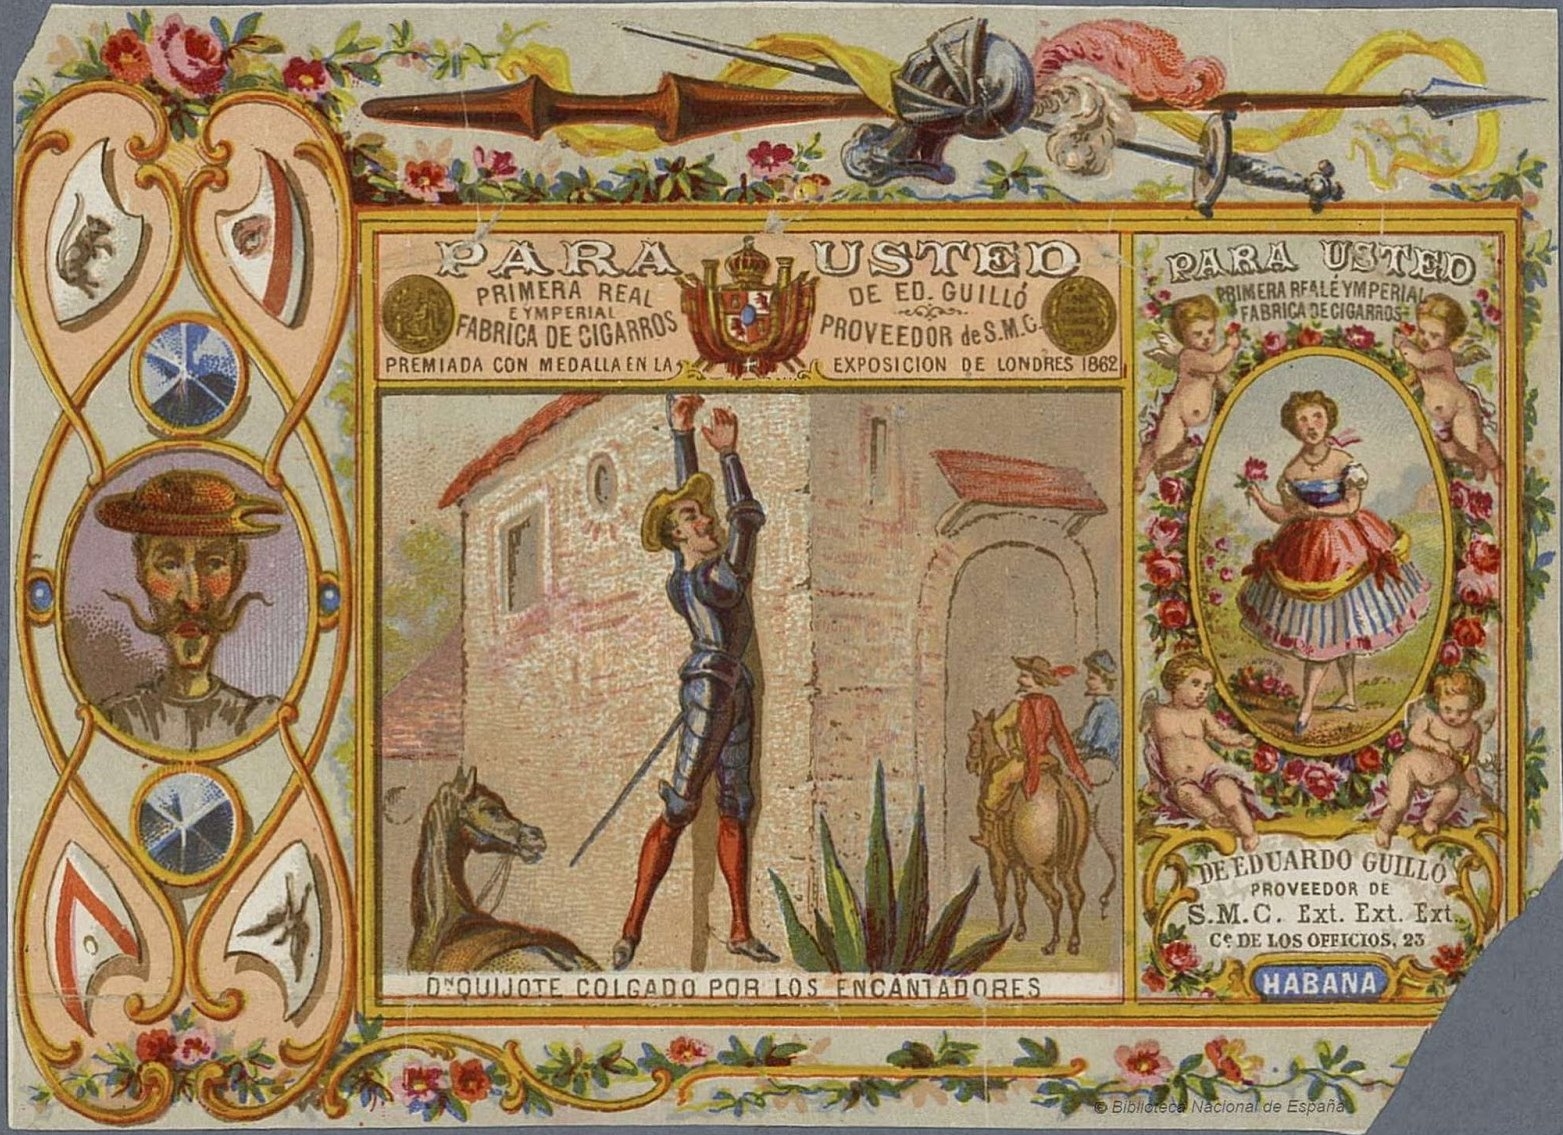 PARA USTED
PRIMERA REAL
E YMPERIAL
FABRICA DE CIGARROS
DE ED. GUILLÓ
PROVEEDOR de S.M.C.
PREMIADA CON MEDALLA EN LA EXPOSICION DE LONDRES 1862
Dn QUIJOTE COLGADO POR LOS ENCANTADORES
PARA USTED
PRIMERA REAL É YMPERIAL
FABRICA DE CIGARROS
DE EDUARDO GUILLÓ
PROVEEDOR DE
S.M.C. Ext. Ext. Ext.
Ce DE LOS OFFICIOS, 23
HABANA
© Biblioteca Nacional de España